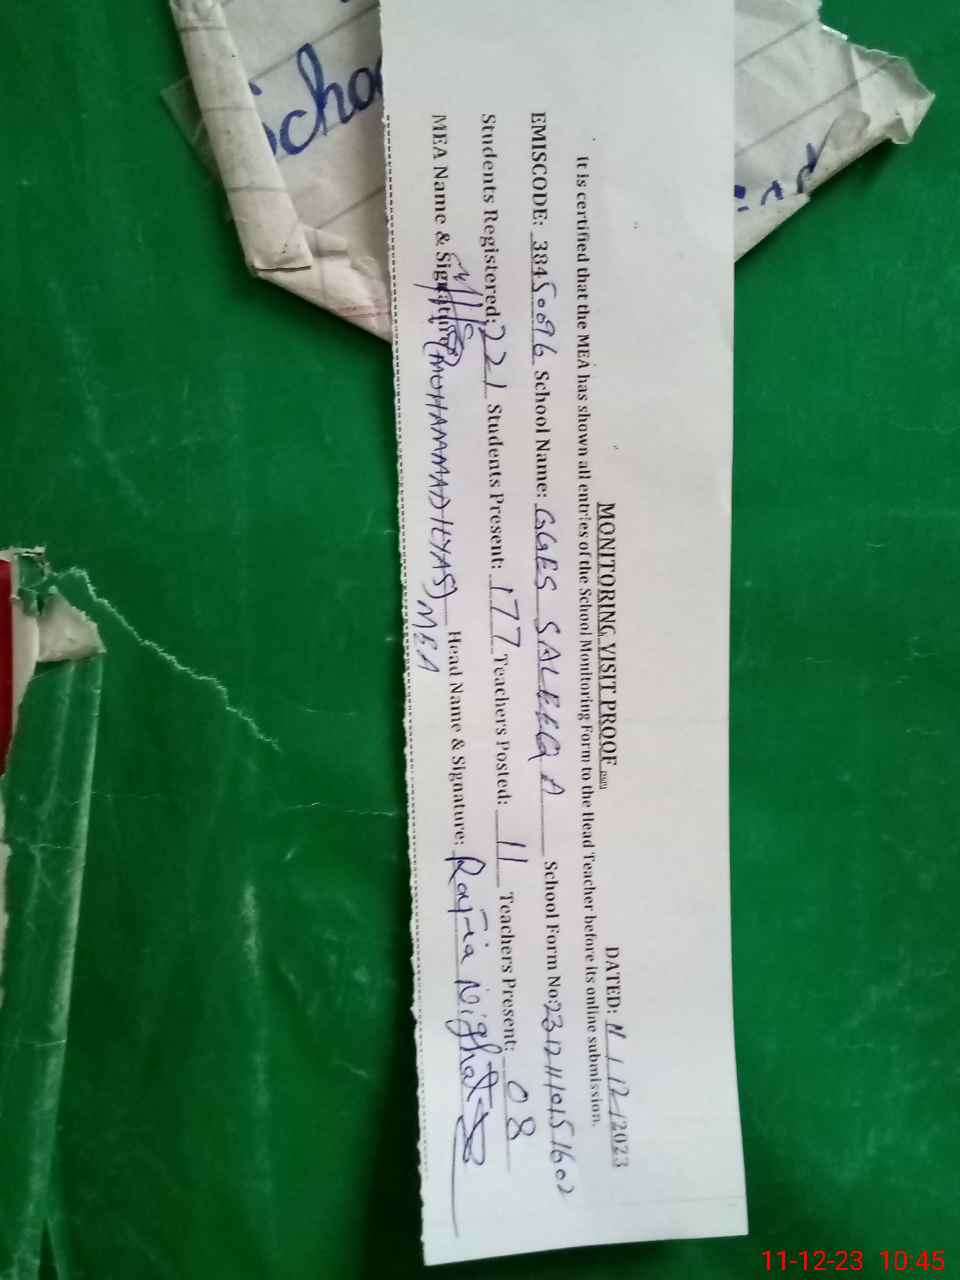 Scho
MONITORING VISIT PROOF DATED: 11 / 12 / 2023
It is certified that the MEA has shown all entries of the School Monitoring Form to the Head Teacher before its online submission.
EMISCODE: 38450096 School Name: GGES SALEEQ A School Form No: 23121110151602
Students Registered: 221 Students Present: 177 Teachers Posted: 11 Teachers Present: 08
MEA Name & Signature (MUHAMMAD ILYAS) MEA Head Name & Signature: Nighat
11-12-23 10:45